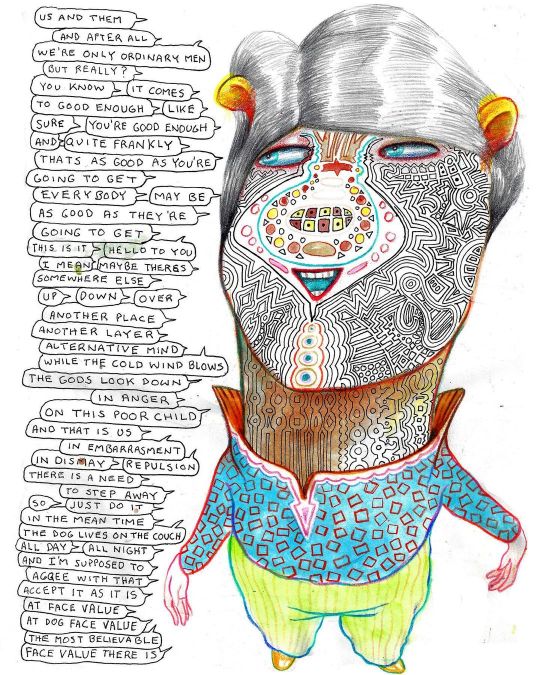 US AND THEM
AND AFTER ALL
WE'RE ONLY ORDINARY MEN
BUT REALLY?
YOU KNOW IT COMES
TO GOOD ENOUGH LIKE
SURE YOU'RE GOOD ENOUGH
AND QUITE FRANKLY
THATS AS GOOD AS YOU'RE
GOING TO GET
EVERYBODY MAY BE
AS GOOD AS THEY'RE
GOING TO GET
THIS IS IT HELLO TO YOU
I MEAN MAYBE THERES
SOMEWHERE ELSE
UP DOWN OVER
ANOTHER PLACE
ANOTHER LAYER
ALTERNATIVE MIND
WHILE THE COLD WIND BLOWS
THE GODS LOOK DOWN
IN ANGER
ON THIS POOR CHILD
AND THAT IS US
IN EMBARRASMENT
IN DISMAY REPULSION
THERE IS A NEED
TO STEP AWAY
SO JUST DO IT
IN THE MEAN TIME
THE DOG LIVES ON THE COUCH
ALL DAY ALL NIGHT
AND I'M SUPPOSED TO
AGREE WITH THAT
ACCEPT IT AS IT IS
AT FACE VALUE
AT DOG FACE VALUE
THE MOST BELIEVABLE
FACE VALUE THERE IS